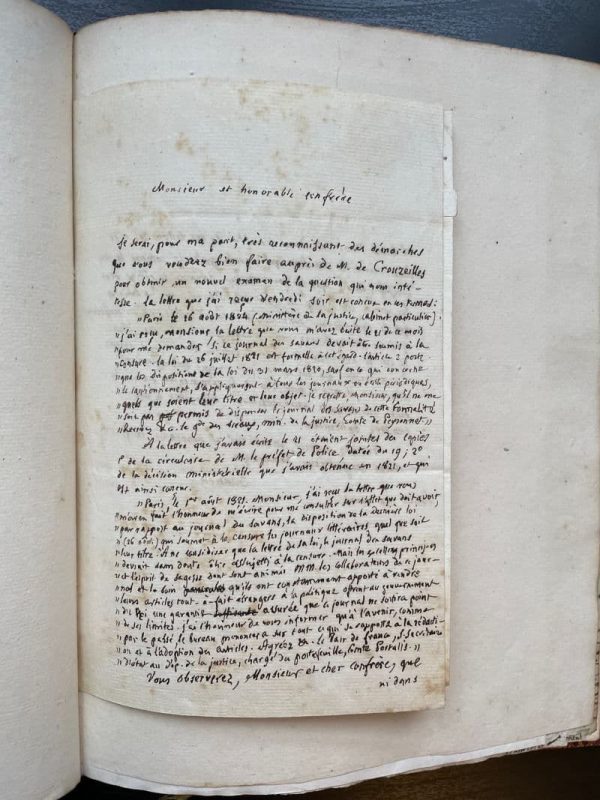 Monsieur et honorable confrère
Je serai, pour ma part, très reconnaissant des démarches
que vous voudrez bien faire auprès de M. de Crouzeilles
pour obtenir un nouvel examen de la question qui nous inté-
resse. la lettre que j'ai reçue vendredi soir est conçue en ces termes:
"Paris le 26 août 1824 (ministère de la justice, cabinet particulier).
"j'ai reçu, monsieur la lettre que vous m'avez écrite le 21 de ce mois
"pour me demander si le journal des savans devait être soumis à la
"censure. la loi du 26 juillet 1821 est formelle à cet égard. l'article 2 porte
"que les dispositions de la loi du 31 mars 1820, sauf en ce qui concerne
"le cautionnement, s'appliqueront à tous les journaux ou écrits périodiques,
"quels que soient leur titre et leur objet. je regrette, monsieur, qu'il ne me
"soit pas permis de dispenser le journal des savans de cette formalité
"Recevez &c. le g.de des sceaux, min. de la justice, Comte de Peyronnet"
A la lettre que j'avais écrite le 21 étaient jointes des copies
1° de la circulaire de M. le préfet de Police, datée du 19; 2°
de la décision ministérielle que j'avais obtenue en 1821, et qui
est ainsi conçue.
"Paris, le 1er août 1821. Monsieur, j'ai reçu la lettre que vous
"m'avez fait l'honneur de m'écrire pour me consulter sur l'effet que doit avoir,
"par rapport au journal des savans, la disposition de la dernière loi
" qui soumet à la censure les journaux littéraires, quel que soit
"leur titre. A ne considérer que la lettre de la loi, le journal des savans
"devrait sans doute être assujetti à la censure. Mais les principes
"et l'esprit de sagesse dont sont animés MM. les collaborateurs de ce jour-
"nal et le soin qu'ils ont constamment apporté à rendre
"leurs articles tout-à-fait étrangers à la politique offrent au gouvernement
"du Roi une garantie assurée que ce journal ne sortira point
"de ses limites. j'ai l'honneur de vous informer qu'à l'avenir, comme
"par le passé, le bureau prononcera sur tout ce qui se rapporte à la rédacti-
"on et à l'adoption des articles. Agréez &c. le Pair de france, s.s Secrétaire
"d'état au dép. de la justice, chargé du portefeuille, Comte Portalis."
Vous observerez, Monsieur et cher confrère, que
ni dans